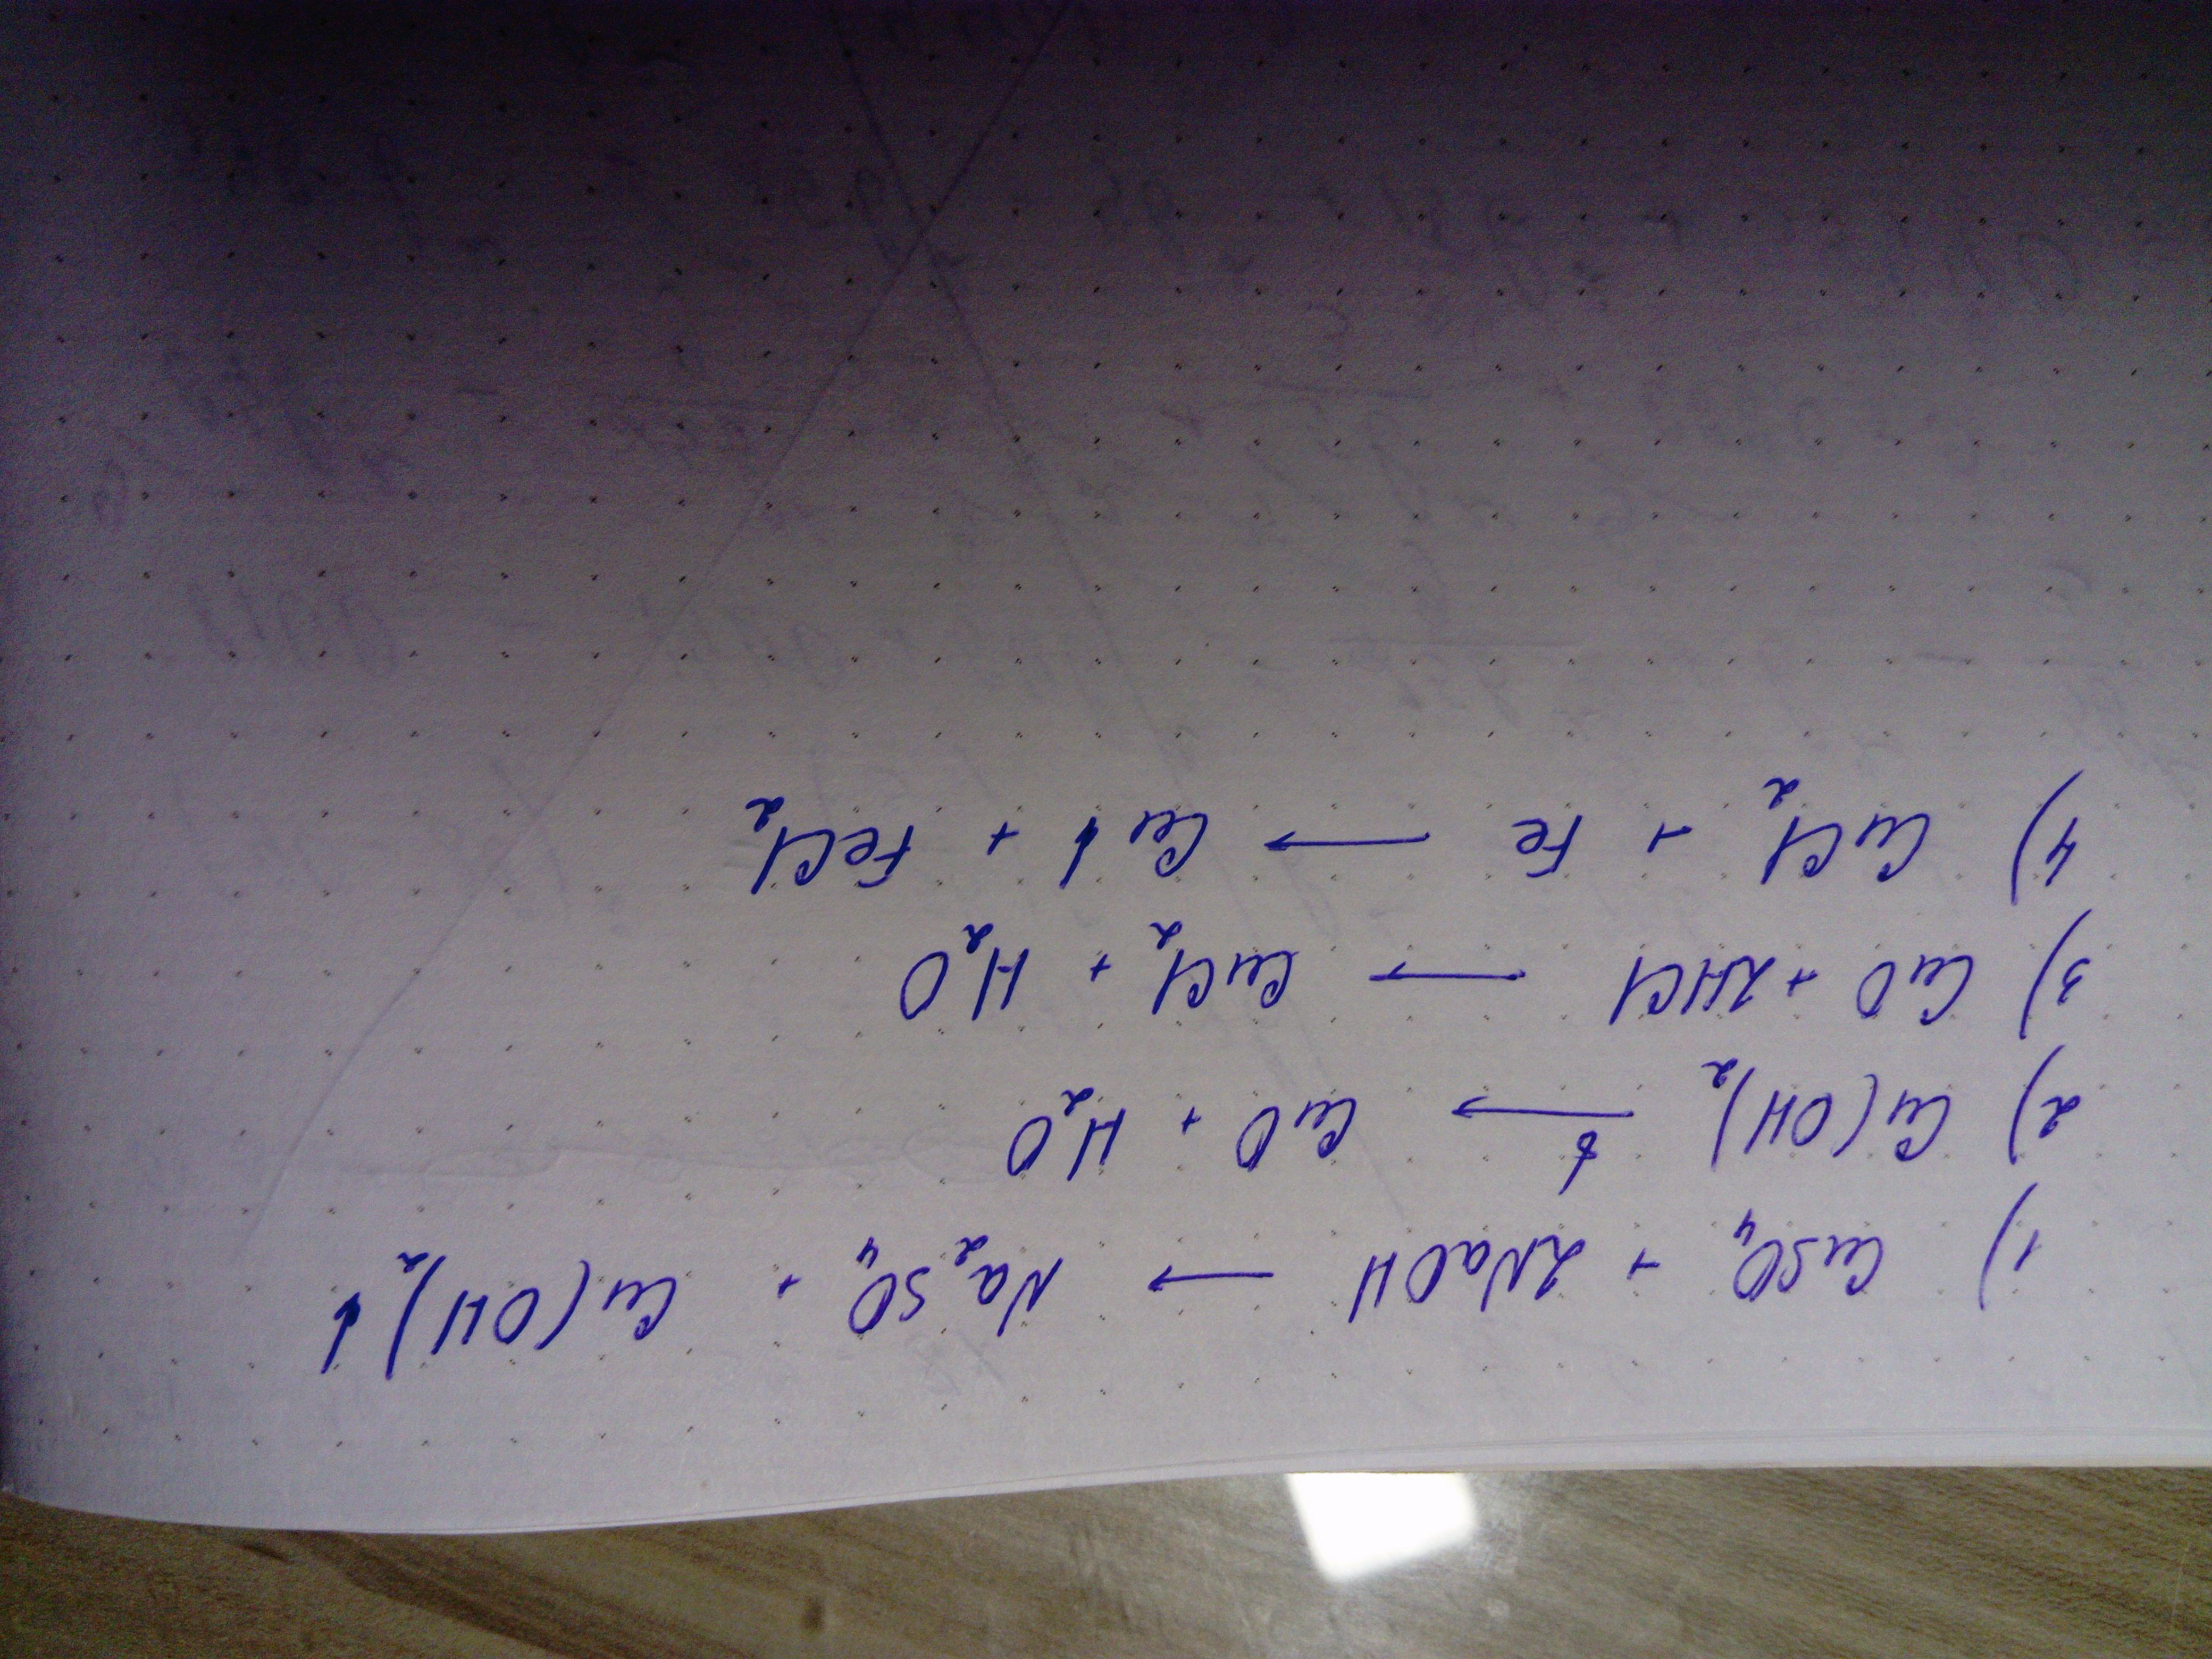 1) CuSO₄ + 2NaOH → Na₂SO₄ + Cu(OH)₂↓
2) Cu(OH)₂ →ᵗ CuO + H₂O
3) CuO + 2HCl → CuCl₂ + H₂O
4) CuCl₂ + Fe → Cu↓ + FeCl₂